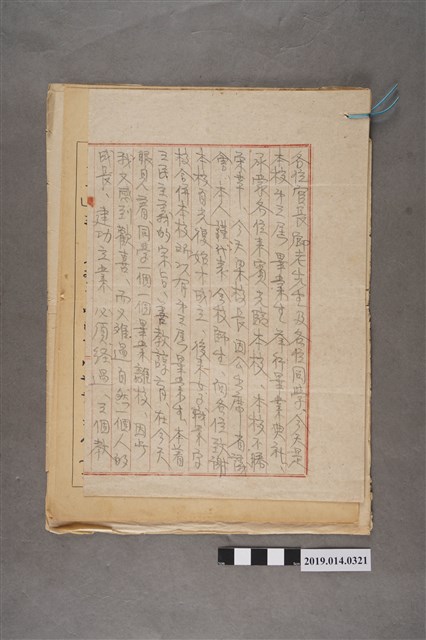 各位官長、師老先生及各位同學、今天是
本校第三屆畢業生舉行畢業典礼、
承蒙各位來賓光臨本校、本校不勝
榮幸、今天果校長因公出席
會、本人謹代表全校師生、向各位致謝
本校自光復始才成立、後來
校合併本校 以有第三屆畢業生、本着
三民主義的宗旨、善教 育、在今天
眼見着同學一個一個畢業離校、因此
我又感到歡喜、而又難過自然一個人的
成長、建功立業必須經過、三個教
2019.014.0321